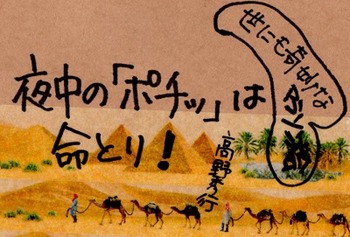 世にも奇妙な
夜中の「ポチッ」は
命とり！
高野秀行